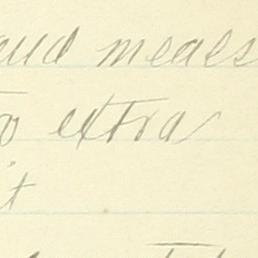 and meals
to extra
't